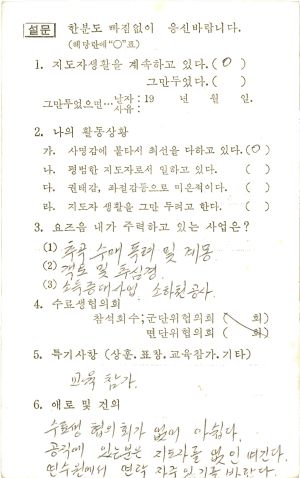 설문 한분도 빠짐없이 응신바랍니다.
(해당란에"○"표)
1. 지도자생활을 계속하고 있다.( O )
그만두었다.( )
그만두었으면…날자: 19 년 월 일.
사유:
2. 나의 활동상황
가. 사명감에 불타서 최선을 다하고 있다.(O)
나. 평범한 지도자로서 일하고 있다. ( )
다. 권태감, 좌절감등으로 미온적이다. ( )
라. 지도자 생활을 그만 두려고 한다. ( )
3. 요즈음 내가 주력하고 있는 사업은?
(1) 추곡 수매 독려 및 계몽
(2) 객토 및 추심경.
(3) 소득증대사업. 소하천공사.
4. 수료생협의회
참석회수;군단위협의회 ( 회)
면단위협의회 ( 회)
5. 특기사항 (상훈.표창.교육참가.기타)
교육 참가.
6. 애로 및 건의
수료생 협의회가 없어 아쉽다.
공직에 있는분은 지도자를 없인 여긴다.
연수원에서 연락 자주 있기를 바란다.